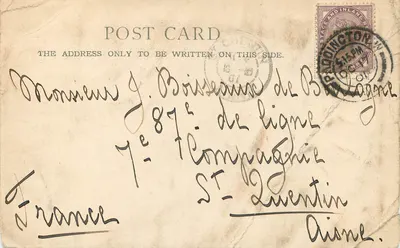 POST CARD
THE ADDRESS ONLY TO BE WRITTEN ON THIS SIDE.
PADDINGTON. W.
5.15 PM
OC 17
01
Monsieur J. Boisseaux de Boulogne
87e de ligne
7e Compagnie
St Quentin
France
Aisne.